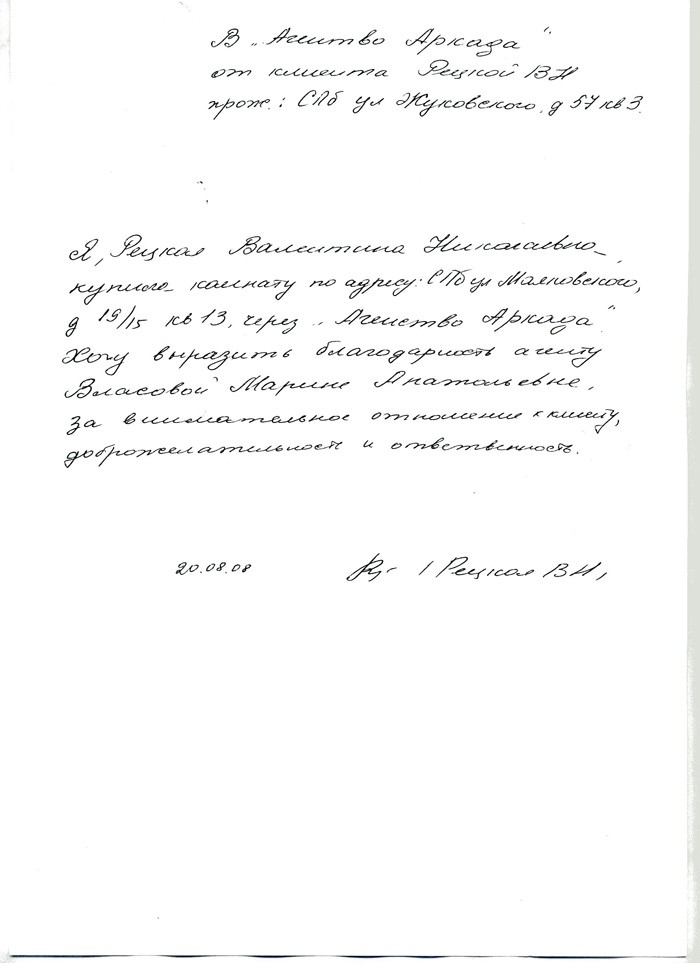 В "Агенство Аркада"
от клиента Рецкой В Н
прож.: СПб ул Жуковского, д 57 кв 3.
Я, Рецкая Валентина Николаевна,
купила комнату по адресу: СПб ул Маяковского,
д 19/15 кв 13, через "Агенство Аркада"
Хочу выразить благодарность агенту
Власовой Марине Анатольевне,
за внимательное отношение к клиенту,
доброжелательность и ответственность.
20.08.08 / Рецкая В Н /